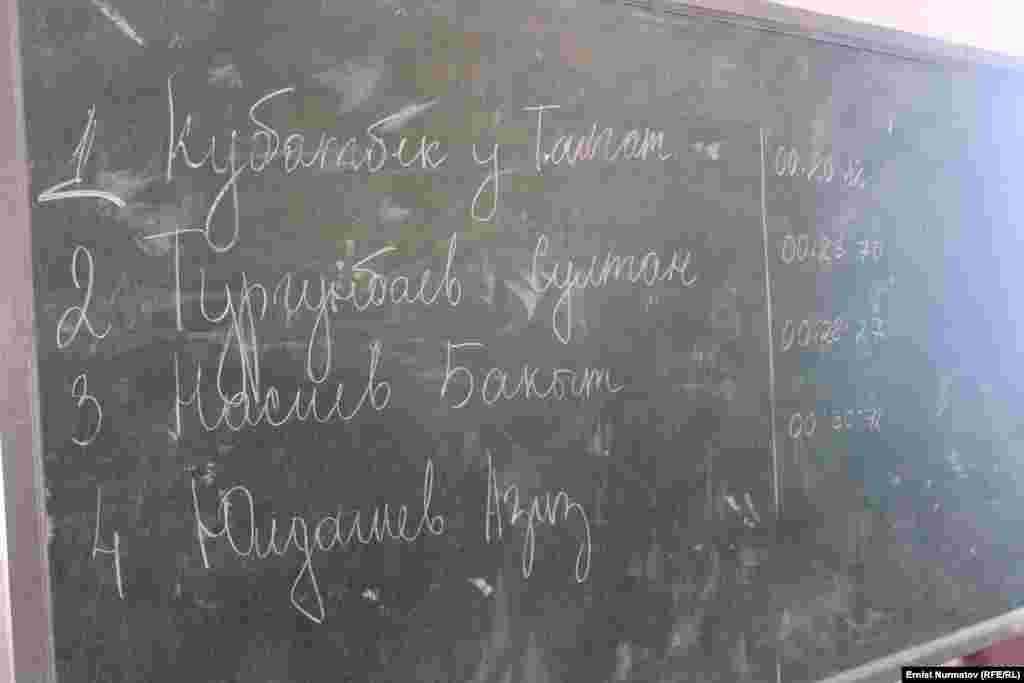 1 Кубатбек у Талгат 00:20
2 Тургунбаев Султан 00:23 70
3 Насиев Бакыт 00:28 27
4 Юлдашев Азиз 00
Ernist Nurmatov (RFE/RL)